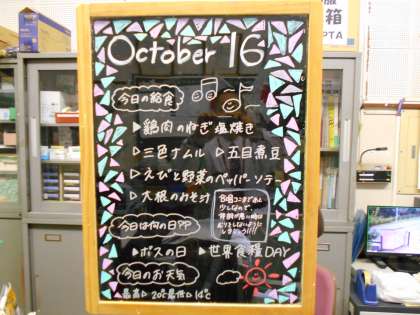 October 16
今日の給食
▷鶏肉のねぎ塩焼き
▷三色ナムル ▷五目煮豆
▷えびと野菜のペッパーソテー
▷大根のおみそ汁
今日は何の日??
▷ボスの日 ▷世界食糧DAY
今日のお天気
最高▷20℃ 最低▷14℃
服
箱
PTA